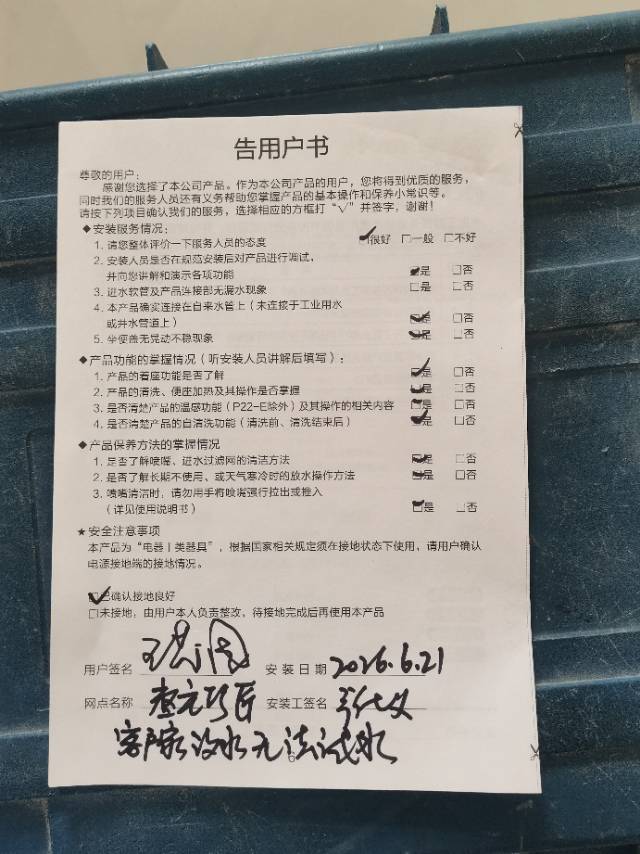 告用户书
尊敬的用户：
感谢您选择了本公司产品。作为本公司产品的用户，您将得到优质的服务，
同时我们的服务人员还有义务帮助您掌握产品的基本操作和保养小常识等。
请按下列项目确认我们的服务，选择相应的方框打“√”并签字，谢谢！
◆安装服务情况：
1. 请您整体评价一下服务人员的态度 ☑很好 □一般 □不好
2. 安装人员是否在规范安装后对产品进行调试，
并向您讲解和演示各项功能 ☑是 □否
3. 进水软管及产品连接部无漏水现象 □是 □否
4. 本产品确实连接在自来水管上（未连接于工业用水
或井水管道上） ☑是 □否
5. 坐便盖无晃动不稳现象 ☑是 □否
◆产品功能的掌握情况（听安装人员讲解后填写）：
1. 产品的着座功能是否了解 ☑是 □否
2. 产品的清洗、便座加热及其操作是否掌握 ☑是 □否
3. 是否清楚产品的温感功能（P22-E除外）及其操作的相关内容 ☑是 □否
4. 是否清楚产品的自清洗功能（清洗前、清洗结束后） ☑是 □否
◆产品保养方法的掌握情况
1. 是否了解喷嘴、进水过滤网的清洁方法 ☑是 □否
2. 是否了解长期不使用、或天气寒冷时的放水操作方法 ☑是 □否
3. 喷嘴清洁时，请勿用手将喷嘴强行拉出或推入
（详见使用说明书） ☑是 □否
★安全注意事项
本产品为“电器Ⅰ类器具”，根据国家相关规定须在接地状态下使用，请用户确认
电源接地端的接地情况。
☑已确认接地良好
□未接地，由用户本人负责整改，待接地完成后再使用本产品
用户签名 安装日期 2026.6.21
网点名称 安装工签名
客户家没水无法试水
6